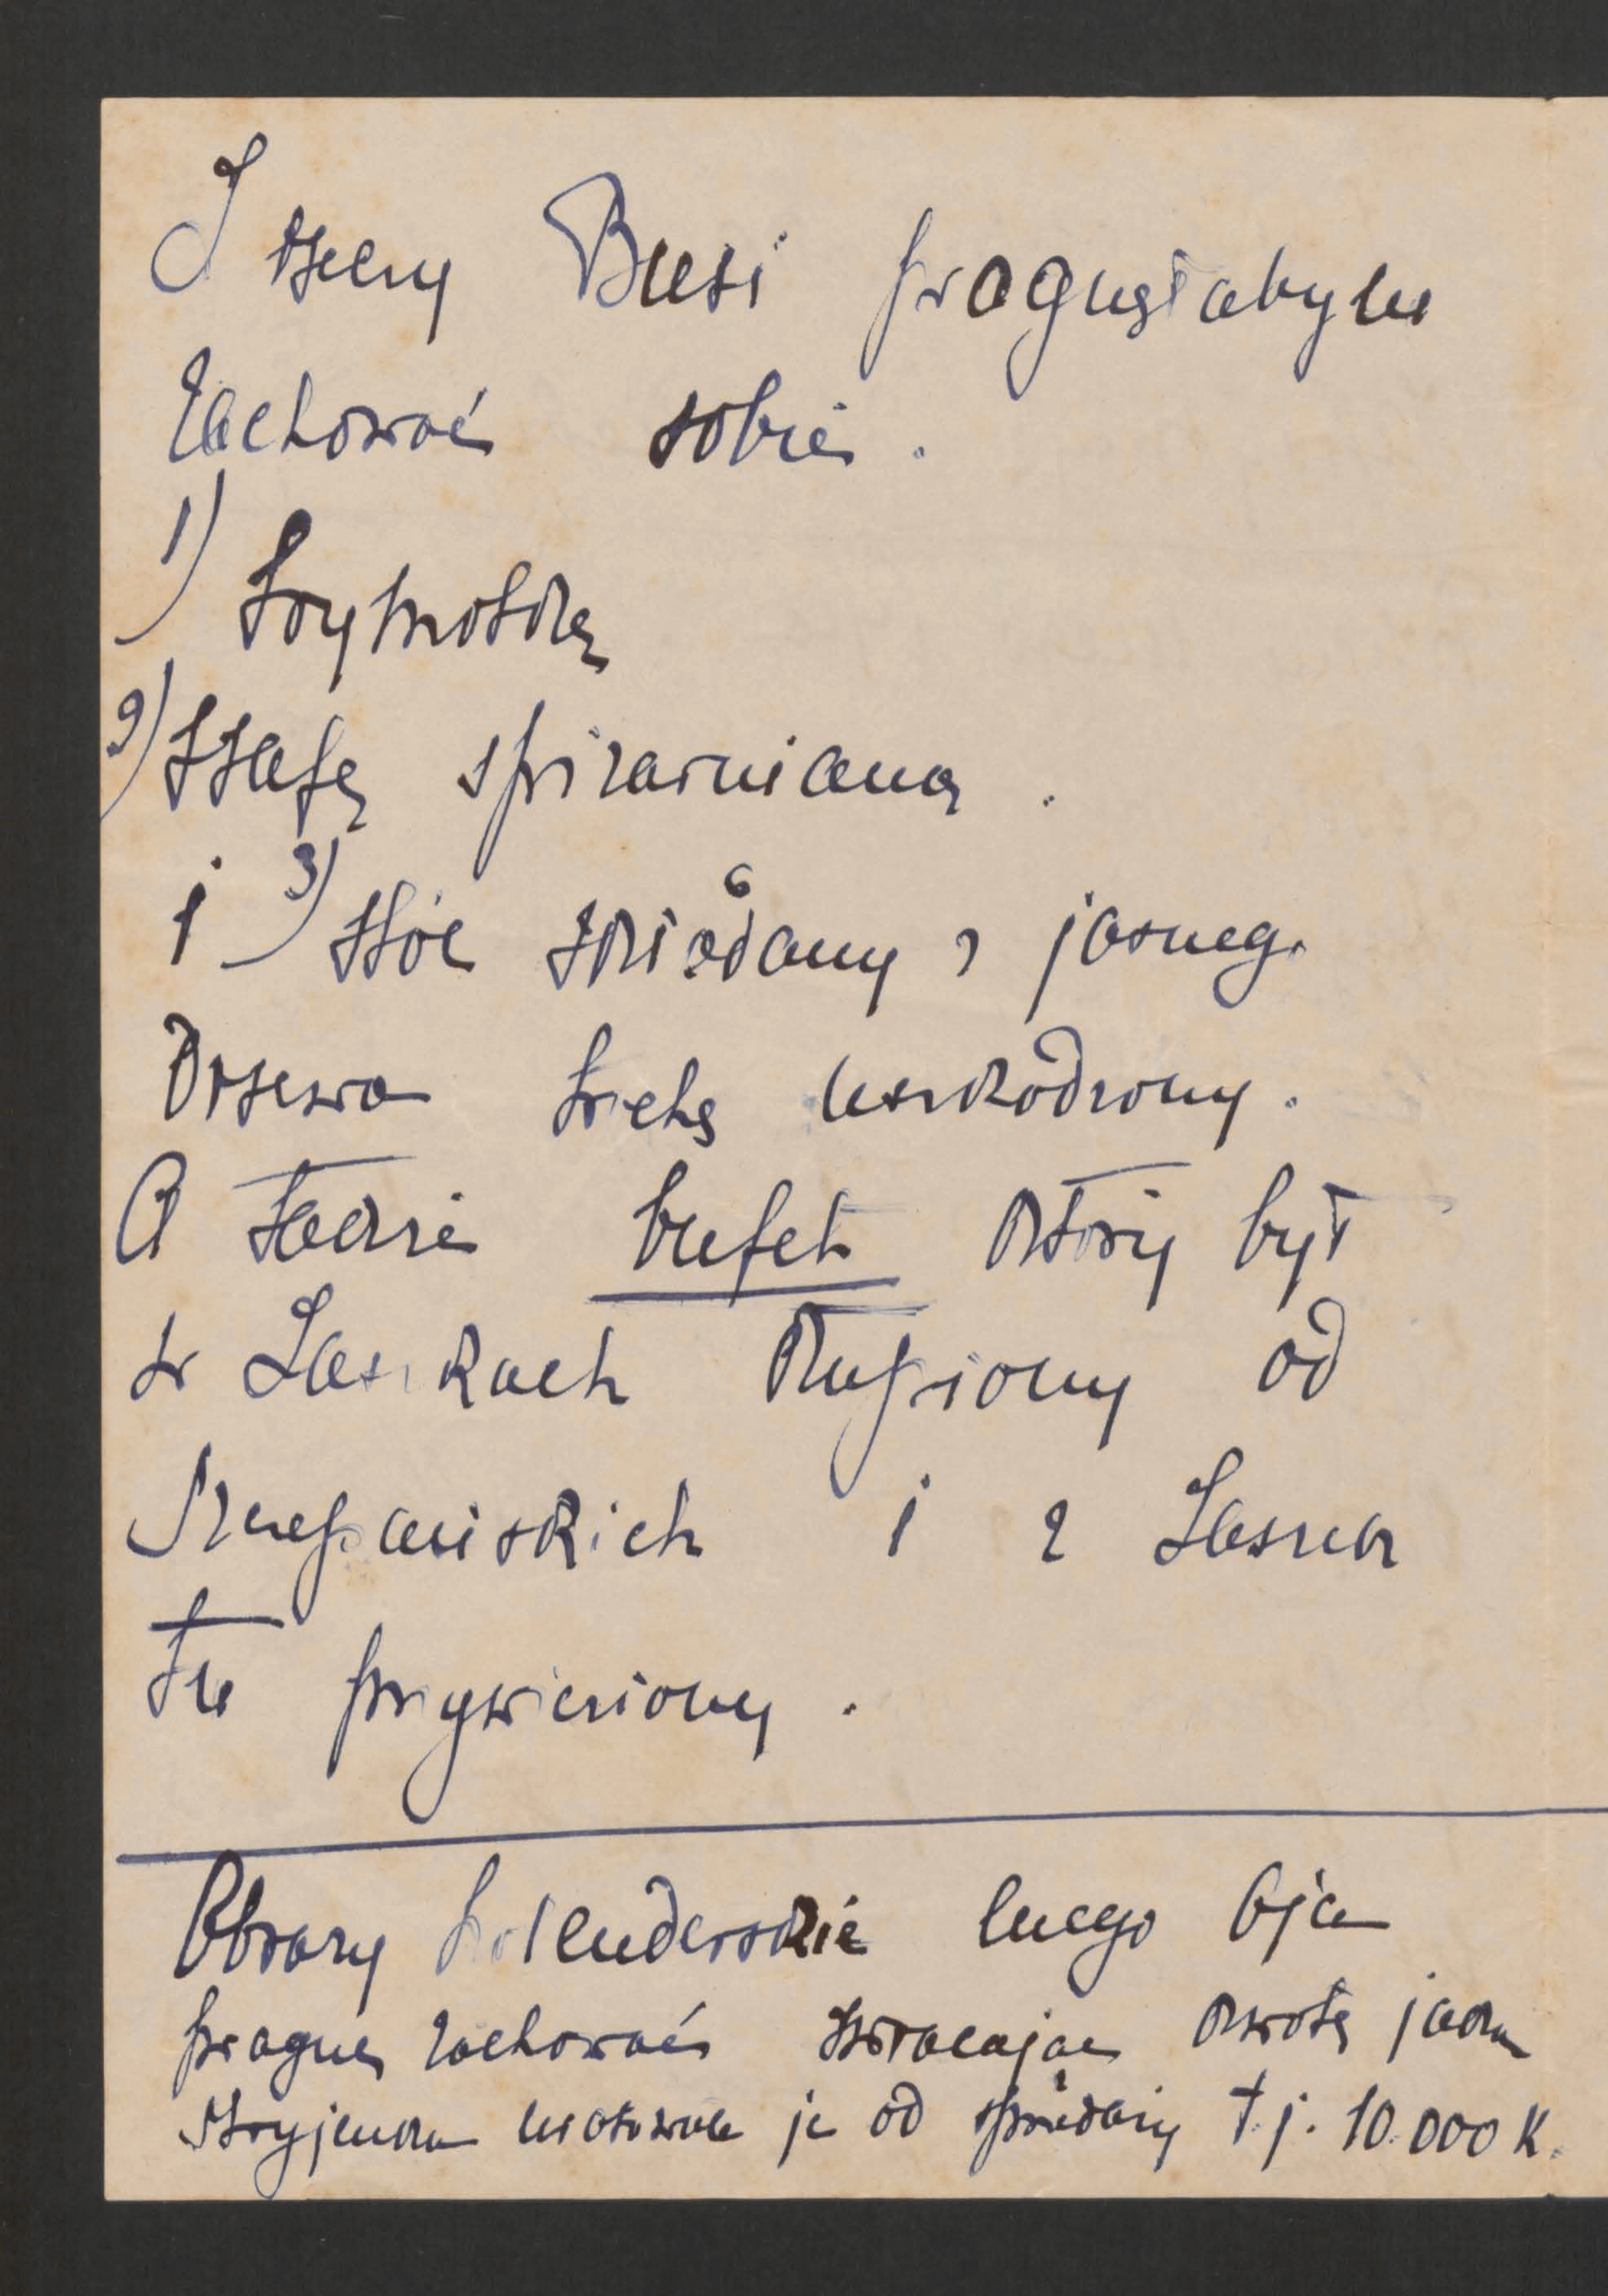 Z rzeczy Busi pragnęłabym
zachować sobie.
1) Szymotkę
2) Szafę spiżarnianą.
i 3) stół składany z jasnego
drzewa trochę uszkodzony.
A także bufet który był
w Laskach kupiony od
i z Laska
tu przywieziony.
Obrazy holenderskie mego Ojca
pragnę zachować zwracając kwotę jaką
Stryjenka uratowała je od sprzedaży t.j. 10.000 K.